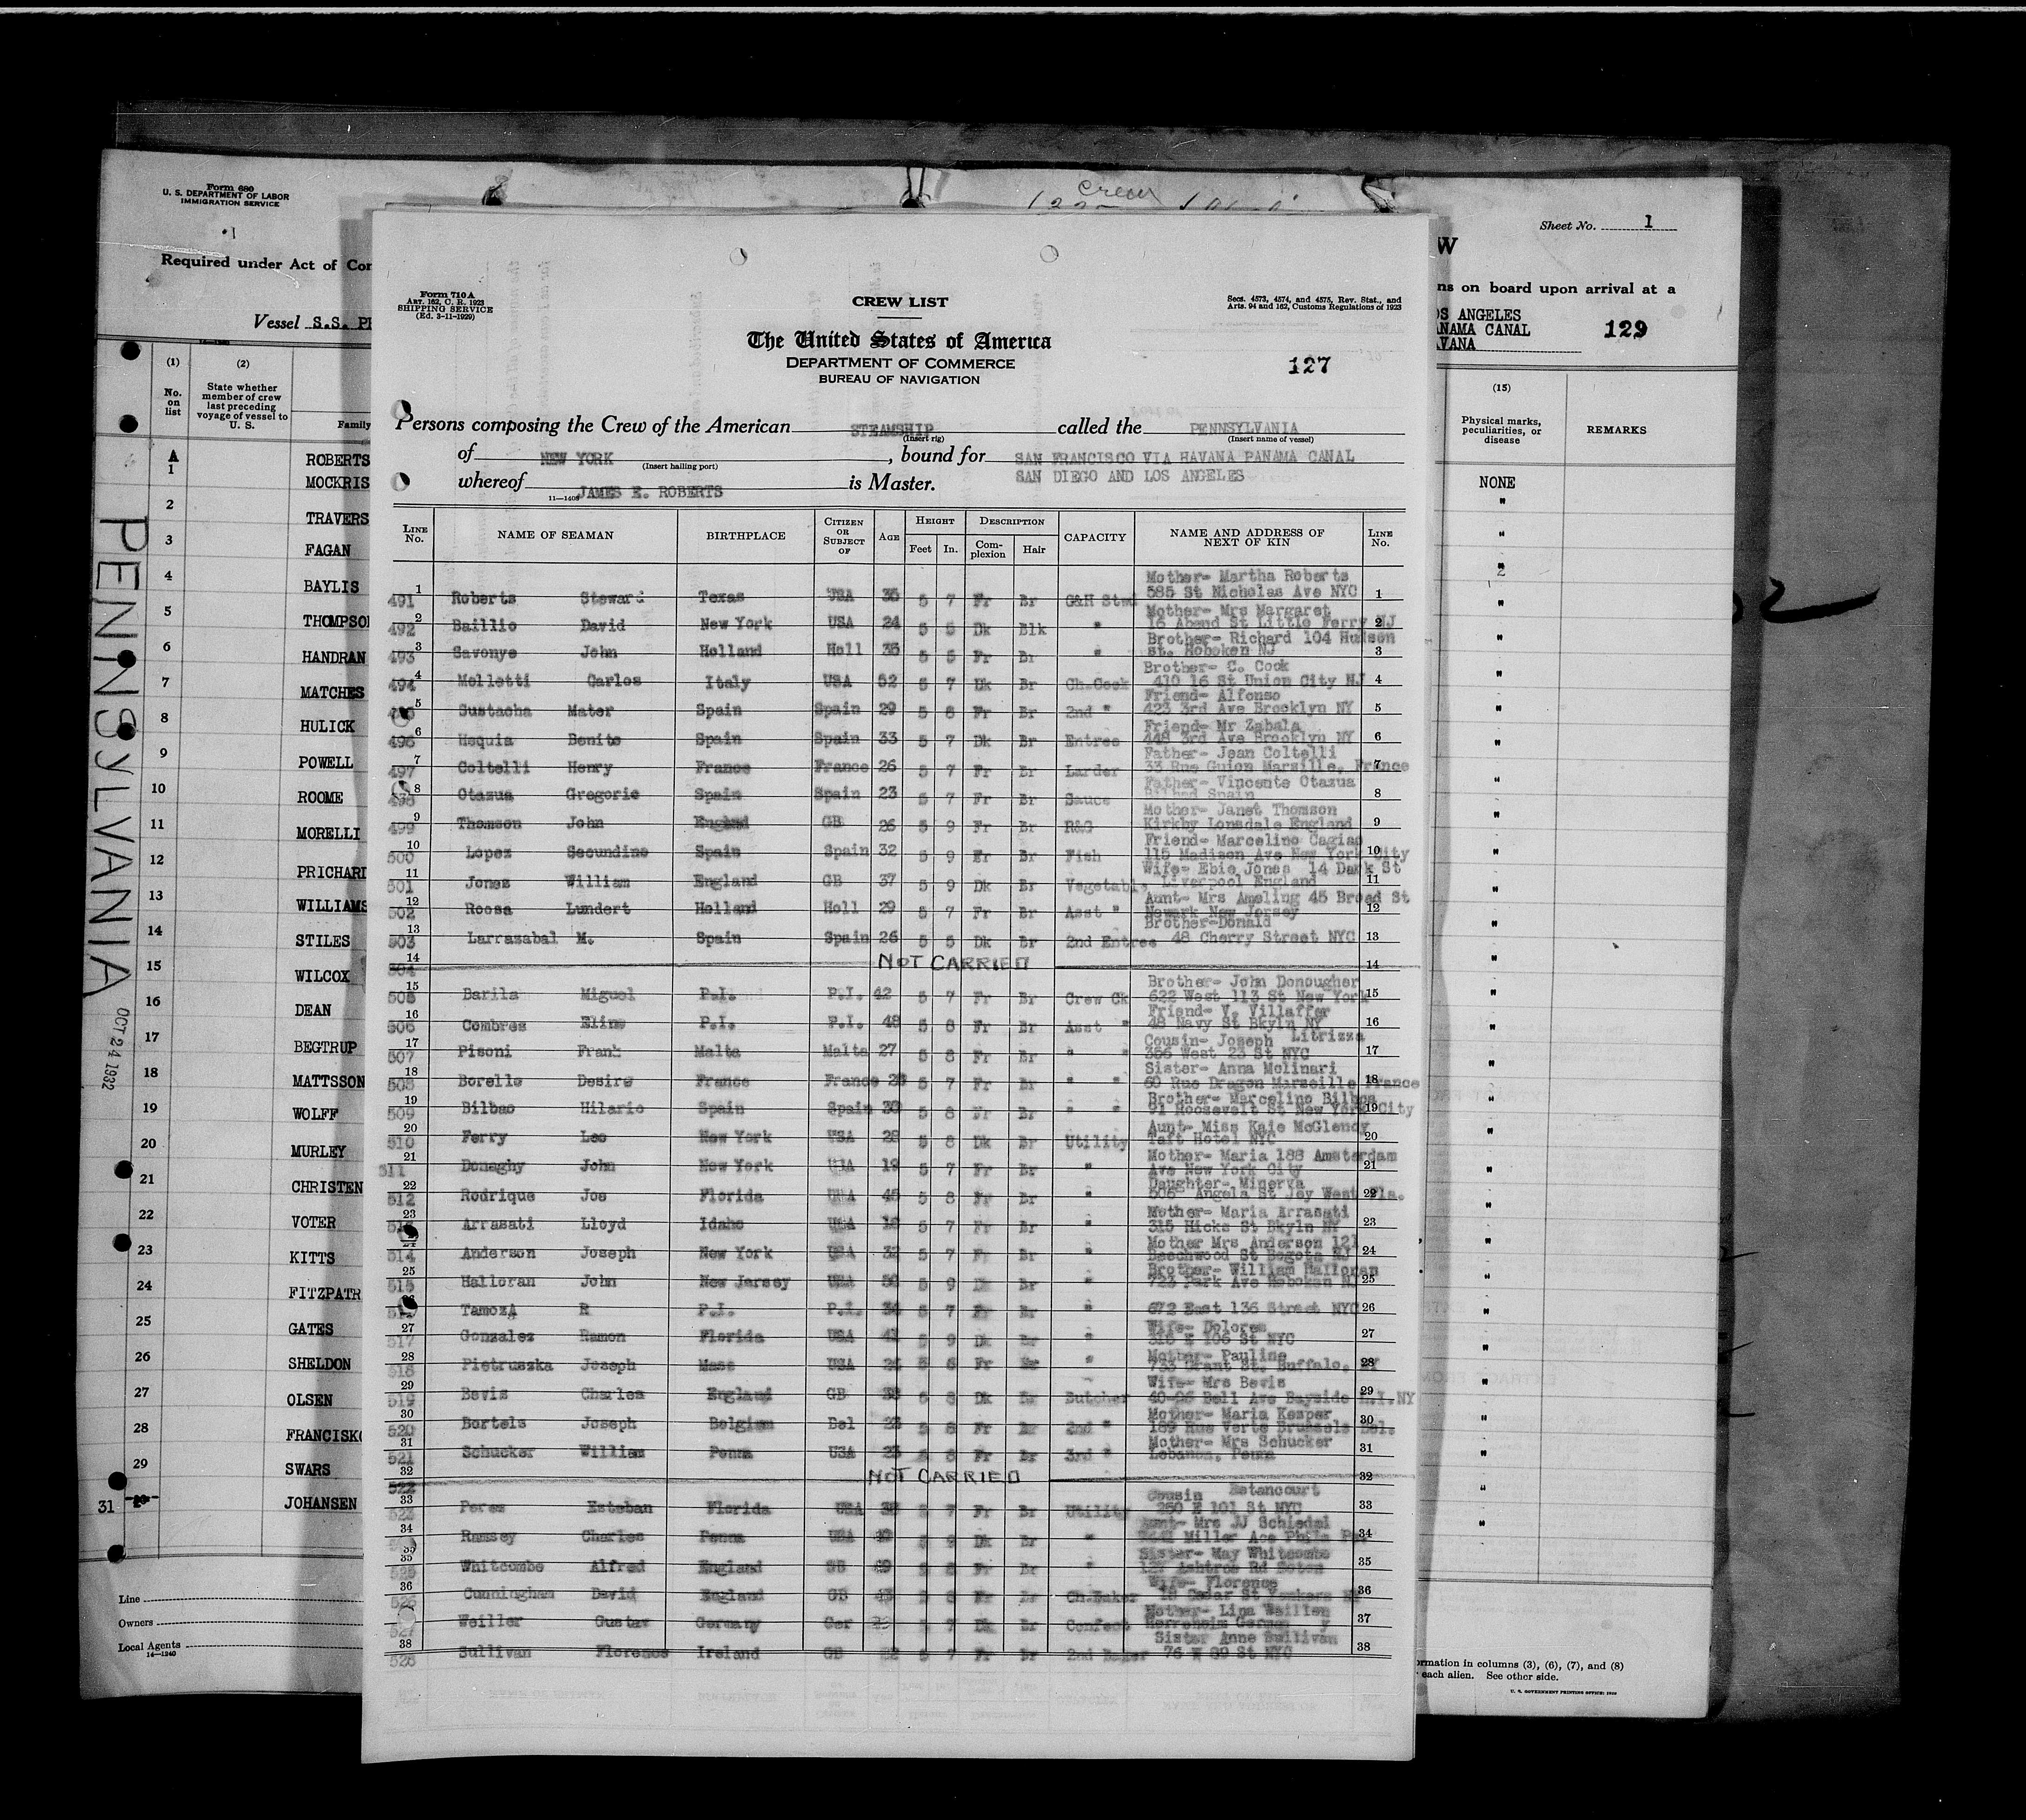 Form 680
U. S. DEPARTMENT OF LABOR
IMMIGRATION SERVICE
Required under Act of Con
Vessel S.S. PE
(1) (2)
No. on list
State whether member of crew last preceding voyage of vessel to U. S.
Family
A
1 ROBERTS
MOCKRIS
2 TRAVERS
3 FAGAN
4 BAYLIS
5 THOMPSO
6 HANDRAN
7 MATCHES
8 HULICK
9 POWELL
10 ROOME
11 MORELLI
12 PRICHARD
13 WILLIAMS
14 STILES
15 WILCOX
16 DEAN
17 BEGTRUP
18 MATTSSON
19 WOLFF
20 MURLEY
21 CHRISTEN
22 VOTER
23 KITTS
24 FITZPATR
25 GATES
26 SHELDON
27 OLSEN
28 FRANCISK
29 SWARS
31 JOHANSEN
Line
Owners
Local Agents
14—1240
PENNSYLVANIA
OCT 24 1932
Crew
Form 710 A
ART. 162, C. R. 1923
SHIPPING SERVICE
(Ed. 3-11-1929)
CREW LIST
Secs. 4573, 4574, and 4575, Rev. Stat., and
Arts. 94 and 162, Customs Regulations of 1923
The United States of America
DEPARTMENT OF COMMERCE
BUREAU OF NAVIGATION
127
Persons composing the Crew of the American STEAMSHIP called the PENNSYLVANIA
(Insert rig) (Insert name of vessel)
of NEW YORK, bound for SAN FRANCISCO VIA HAVANA PANAMA CANAL
(Insert hailing port)
whereof JAMES E. ROBERTS is Master. SAN DIEGO AND LOS ANGELES
11—1408
LINE No. NAME OF SEAMAN BIRTHPLACE CITIZEN OR SUBJECT OF AGE HEIGHT Feet In. DESCRIPTION Complexion Hair CAPACITY NAME AND ADDRESS OF NEXT OF KIN LINE No.
Mother- Martha Roberts
1 491 Roberts Steward Texas USA 35 5 7 Fr Br G&H Stwd 585 St Nicholas Ave NYC 1
Mother- Mrs Margaret
2 492 Baillie David New York USA 24 5 5 Dk Blk " 16 Abend St Little Ferry NJ 2
Brother- Richard 104 Hudson
3 493 Savonye John Holland Holl 35 5 5 Fr Br " st. Hoboken NJ 3
Brother- C. Cook
4 494 Molletti Carlos Italy USA 52 5 7 Dk Br Ch.Cook 410 16 St Union City NJ 4
Friend- Alfonso
5 Sustacha Mater Spain Spain 29 5 8 Fr Br 2nd " 423 3rd Ave Brooklyn NY 5
Friend- Mr Zabala
6 496 Hequia Benito Spain Spain 33 5 7 Dk Br Entree 448 3rd Ave Brooklyn NY 6
Father- Jean Coltelli
7 497 Coltelli Henry France France 26 5 7 Fr Br Larder 33 Rue Guion Marsille, France 7
Father- Vincente Otazua
8 498 Otazua Gregorio Spain Spain 23 5 7 Fr Br Sauce Bilbad Spain 8
Mother- Janet Thomson
9 499 Thomson John England GB 26 5 9 Fr Br R&G Kirkby Lonsdale England 9
Friend- Marcelino Cagiao
10 500 Lopez Secundino Spain Spain 32 5 9 Fr Br Fish 115 Madison Ave New York City 10
Wife- Ebie Jones 14 Dark St
11 501 Jones William England GB 37 5 9 Dk Br Vegetabl. Liverpool England 11
Aunt- Mrs Ameling 45 Broad St
12 502 Roosa Lundert Holland Holl 29 5 7 Fr Br Asst " Newark New Jersey 12
Brother-Donald
13 503 Larrazabal M. Spain Spain 26 5 5 Dk Br 2nd Entree 48 Cherry Street NYC 13
14 504 NOT CARRIED 14
Brother- John Donougher
15 505 Barila Miguel P.I. P.I. 42 5 7 Fr Br Crew Ck 622 West 113 St New York 15
Friend- V. Villaffer
16 506 Combres Eline P.I. P.I. 48 5 8 Fr Br Asst " 48 Navy St Bkyln NY 16
Cousin- Joseph Litrizza
17 507 Pisoni Frank Malta Malta 27 5 8 Fr Br " " 356 West 23 St NYC 17
Sister- Anna Molinari
18 508 Borello Desire France France 28 5 7 Fr Br " " 60 Rue Dragon Marseille France 18
Brother- Marcelino Bilboa
19 509 Bilbao Hilario Spain Spain 30 5 8 Fr Br " " 91 Roosevelt St New York City 19
Aunt- Miss Kaie McGlendy
20 510 Ferry Leo New York USA 28 5 8 Dk Br Utility Taft Hotel NYC 20
Mother- Maria 188 Amsterdam
21 511 Donaghy John New York USA 19 5 7 Fr Br " Ave New York City 21
Daughter- Minerva
22 512 Rodrique Jos Florida USA 45 5 8 Fr Br " 506 Angela St Jey West Fla. 22
Mother- Maria Arrasati
23 513 Arrasati Lloyd Idaho USA 18 5 7 Fr Br " 315 Hicks St Bkyln NY 23
Mother Mrs Anderson 121
24 514 Anderson Joseph New York USA 32 5 7 Br " Beechwood St Bogota NJ 24
Brother- William Halloran
25 515 Halloran John New Jersey USA 50 5 9 Br " 723 Park Ave Hoboken NJ 25
26 TamozA R P.I. P.I. 34 5 7 Fr Br " 672 East 136 Street NYC 26
Wife- Dolores
27 517 Gonzalez Ramon Florida USA 5 9 Dk Br " 318 E 106 St NYC 27
Mother- Pauline
28 518 Pietruszka Joseph Mass USA 24 Fr Br " 733 Grant St. Buffalo, NY 28
Wife- Mrs Bevis
29 519 Bevis Charles England GB 5 8 Dk Br Butcher 40-06 Bell Ave Bayside L.I.NY 29
Mother- Maria Kesper
30 520 Bortels Joseph Belgium Bel 5 8 Fr Br 2nd " 189 Rue Verte Brussels Bel. 30
Mother- Mrs Schucker
31 521 Schucker William Penna USA 23 Fr Br 3rd " Lebanon, Penna 31
32 522 NOT CARRIED 32
Cousin Betancourt
33 523 Peres Esteban Florida USA 38 7 Fr Br Utility 250 E 101 St NYC 33
Aunt- Mrs JJ Schiedel
34 Ramsey Charles Penna USA 9 Dk Br " Miller Ace Phila Pa. 34
Sister- May Whitcombe
35 525 Whitcombe Alfred England GB 49 Fr Br " Ashtree Rd 35
Wife- Florence
36 526 Cunningham David England GB Fr Br Ch.Baker 18 Cedar St Yonkers NY 36
Mother- Lina Weiller
37 527 Weiller Gustav Germany Ger 7 Dk Br Confect Herxheim German y 37
Sister Anne Sullivan
38 528 Sullivan Florence Ireland GB 5 7 Fr Br 2nd Baker 76 W 89 St NYC 38
Sheet No. 1
W
ns on board upon arrival at a
OS ANGELES
ANAMA CANAL
AVANA
129
(15)
Physical marks, peculiarities, or disease
REMARKS
NONE
2
ormation in columns (3), (6), (7), and (8)
each alien. See other side.
U. S. GOVERNMENT PRINTING OFFICE